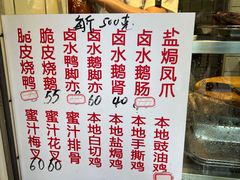 每斤 500克
脆皮烧鸭
脆皮烧鹅
55
卤水鸭脚亦
卤水鹅脚亦
60
卤水鹅肾
40
卤水鹅肠
盐焗凤爪
蜜汁梅叉
60
蜜汁花叉
60
蜜汁排骨
本地白切鸡
本地盐焗鸡
本地手撕鸡
本地豉油鸡